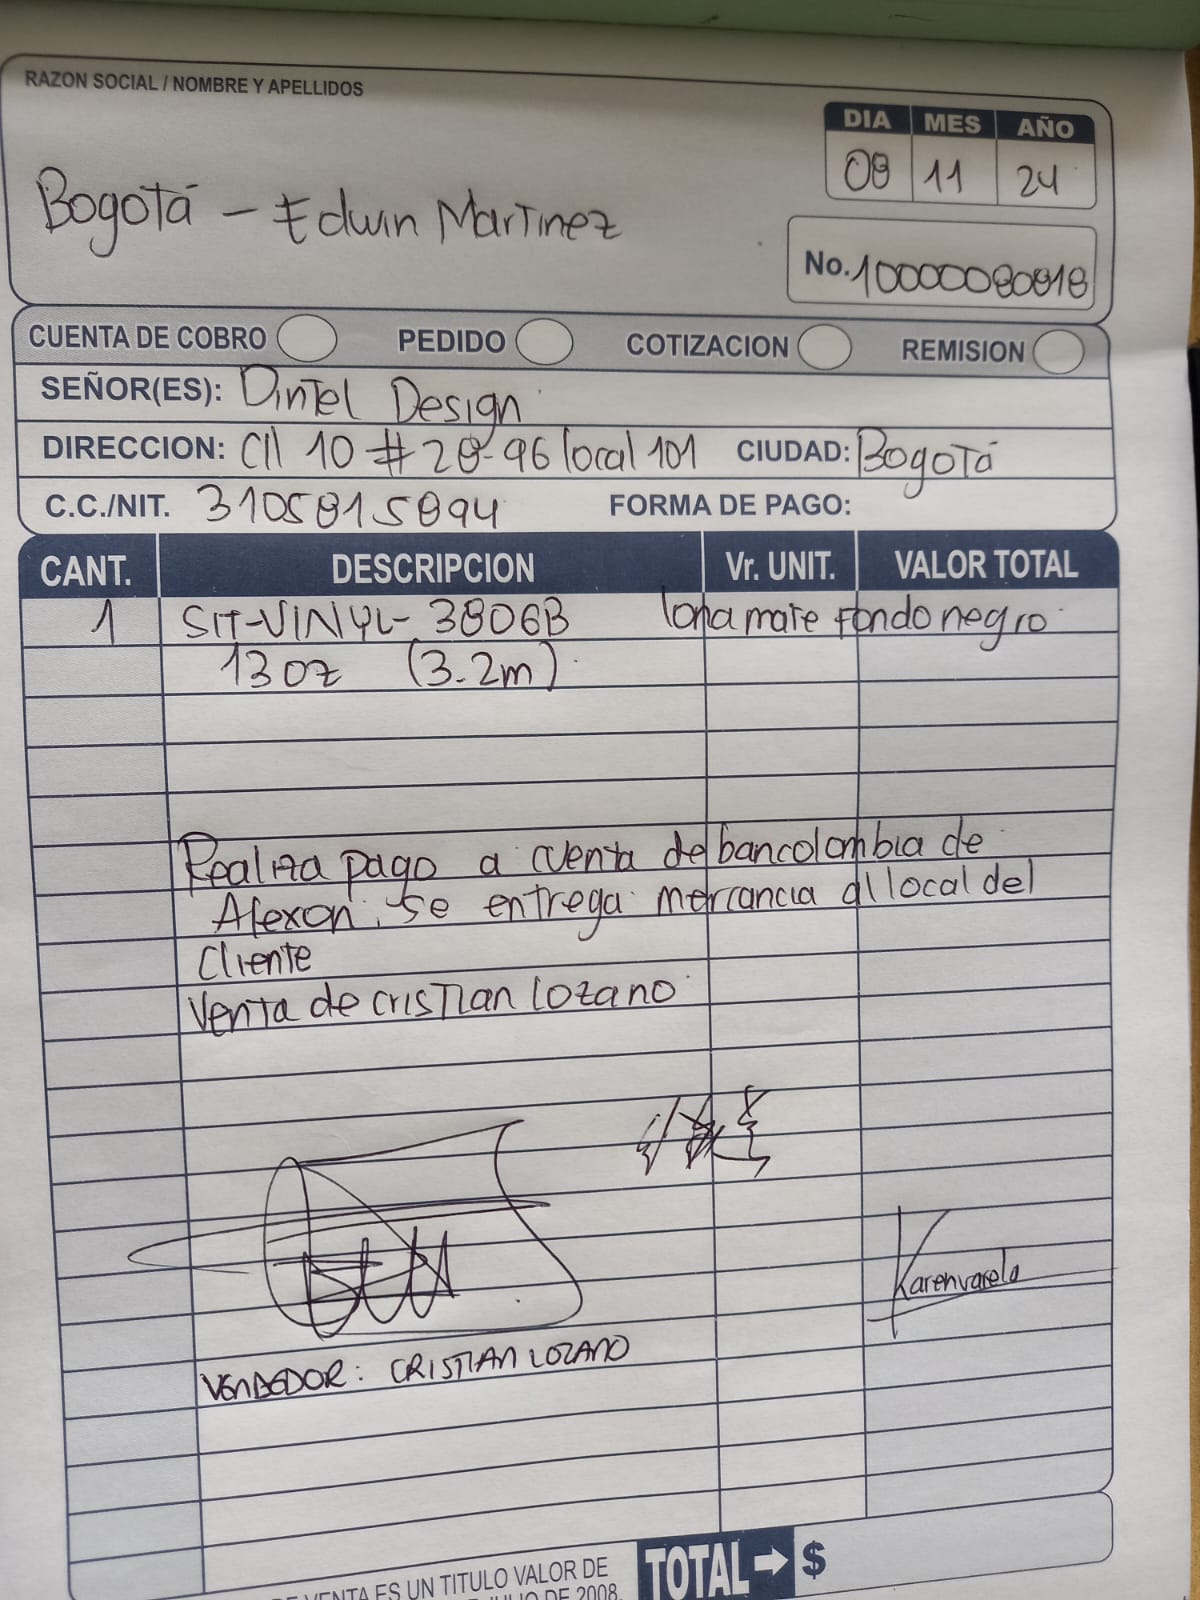 RAZON SOCIAL / NOMBRE Y APELLIDOS
DIA MES AÑO
08 11 24
Bogotá - Edwin Martinez
No. 10000080818
CUENTA DE COBRO PEDIDO COTIZACION REMISION
SEÑOR(ES): Dintel Design
DIRECCION: Cll 10 # 28-96 local 101 CIUDAD: Bogotá
C.C./NIT. 3105815894 FORMA DE PAGO:
CANT. DESCRIPCION Vr. UNIT. VALOR TOTAL
1 SIT-VINYL-3806B lona mate fondo negro
13 oz (3.2m)
Realiza pago a cuenta de bancolombia de
Afexon. se entrega mercancia al local del
Cliente
Venta de cristian lozano
Karenvarela
VENDEDOR: CRISTIAN LOZANO
VENTA ES UN TITULO VALOR DE
DE 2008.
TOTAL → $